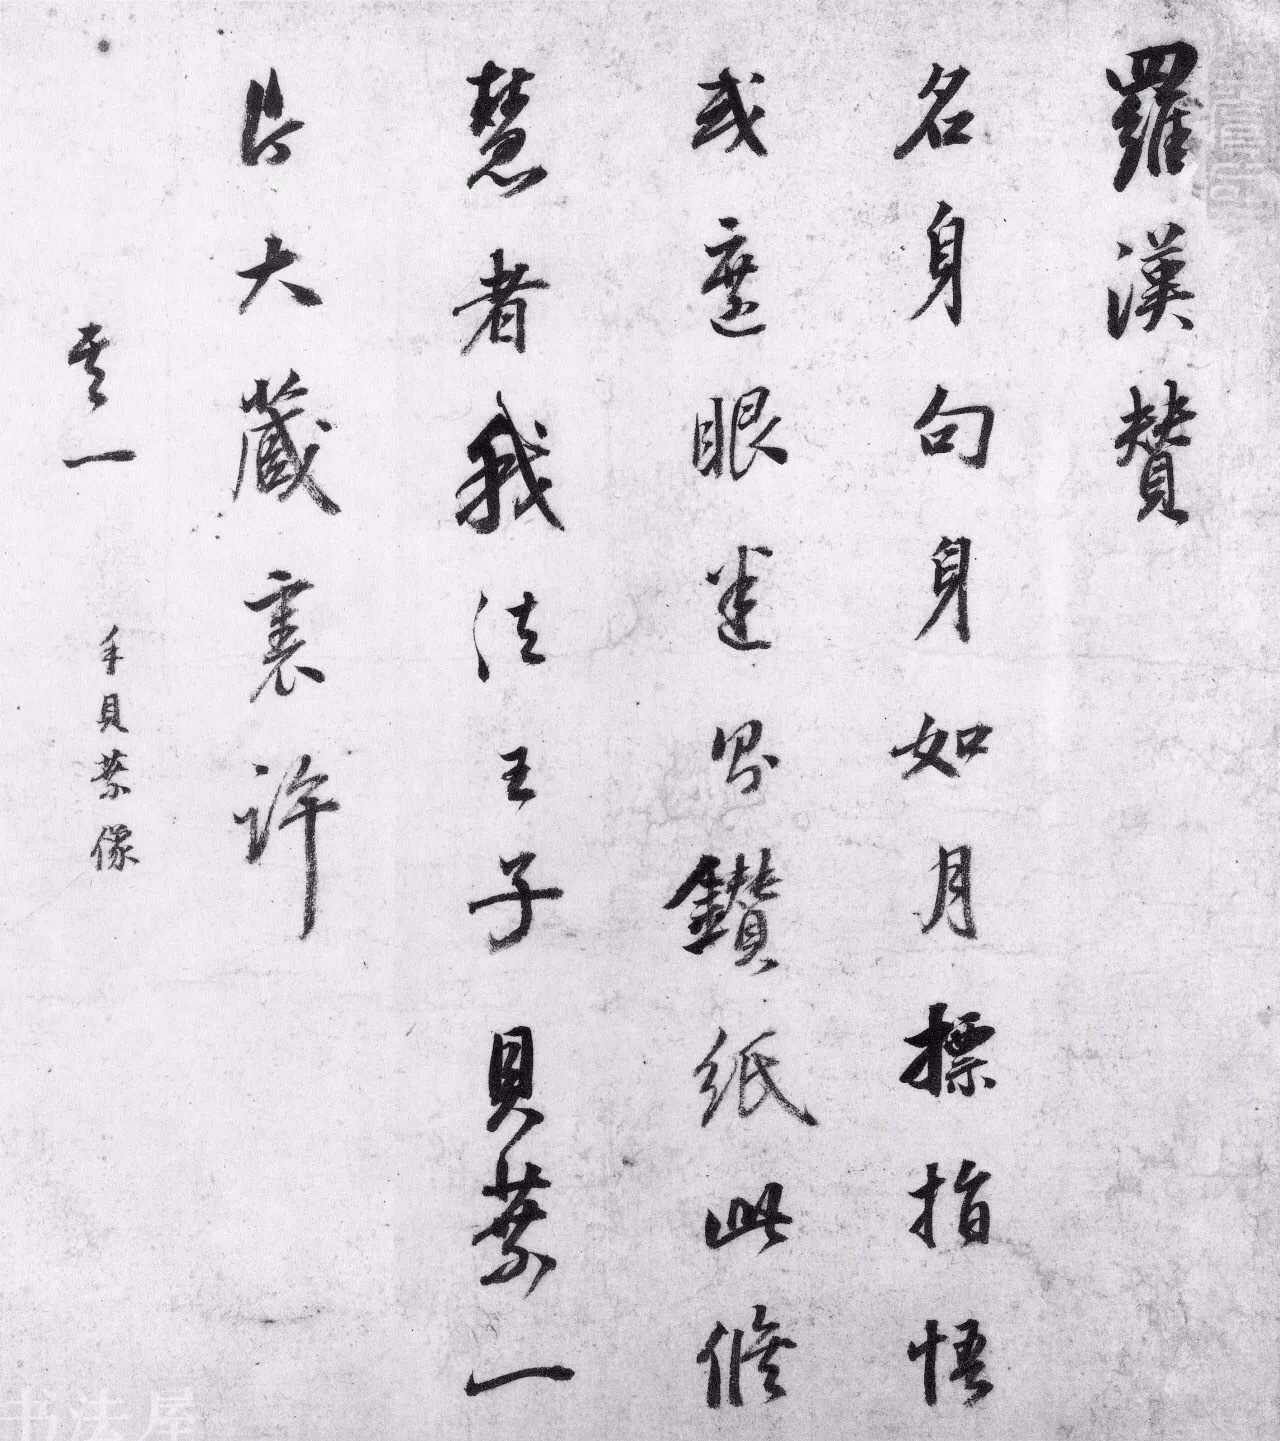 羅漢贊
名身句身如月標指悟
或遮眼迷即鑽紙此修
慧者我法王子貝葉一
片大藏裏許
第一
手貝葉像
书法屋